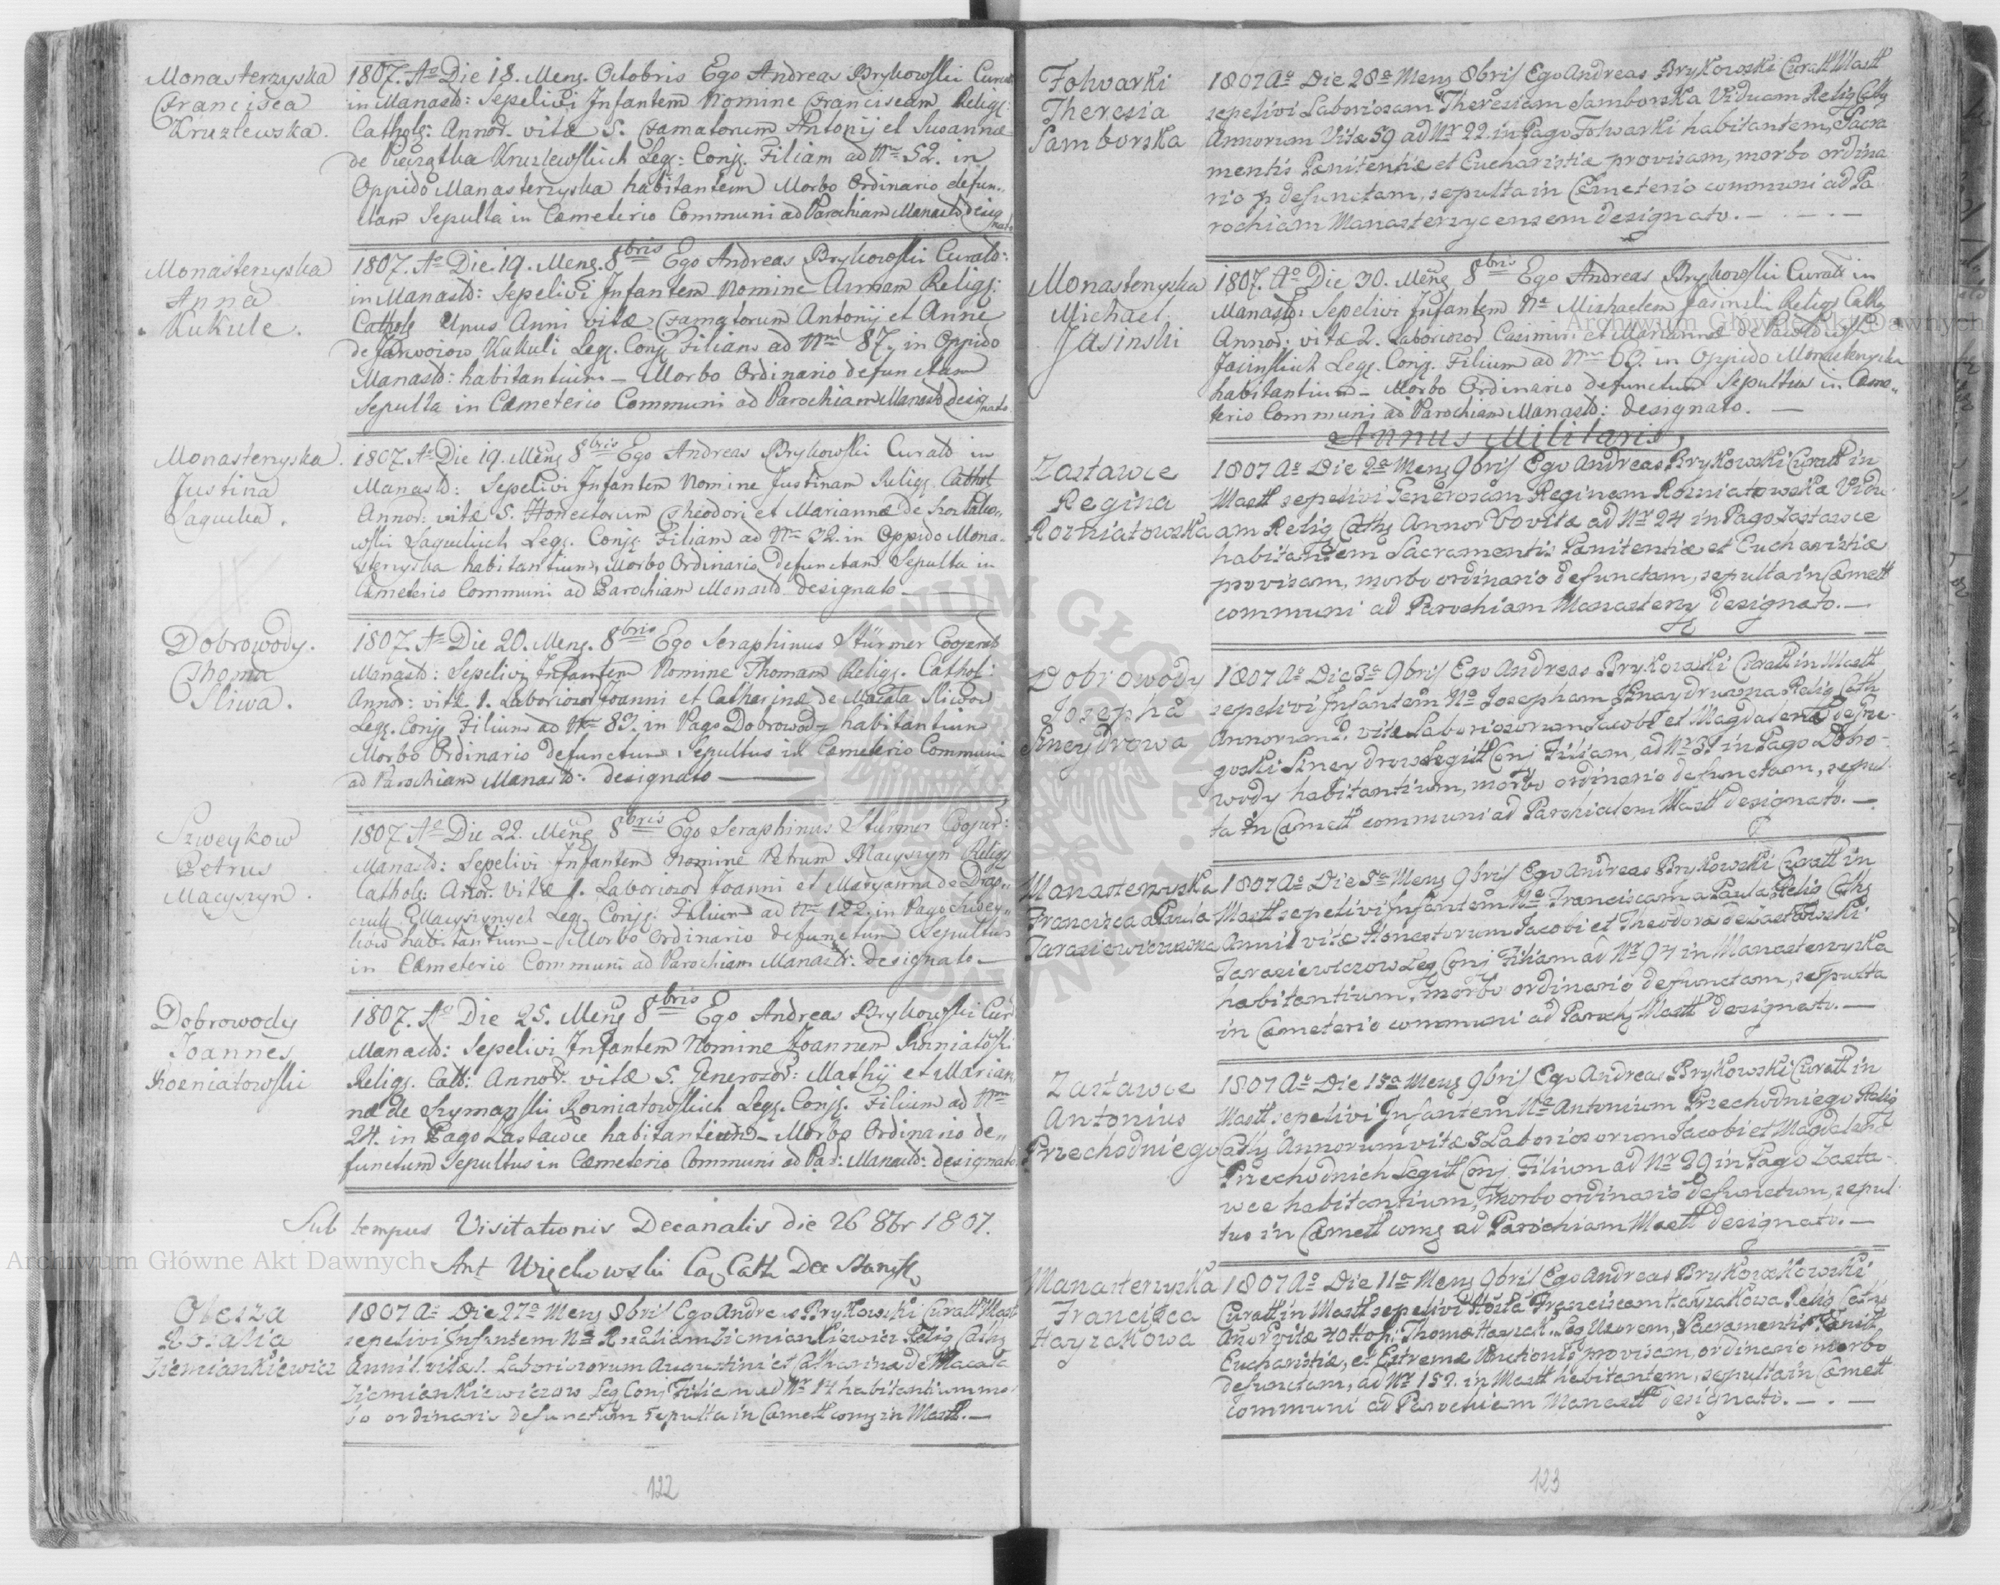 Monasterzyska
Francisca
Kruzlewska.
1807. Ao Die 18. Mens. Octobris Ego Andreas Brykowski Curat
in Manastr: Sepelivi Infantem Nomine Franciscam Religs:
Cathols: Annor. vitæ 5. Famatorum Antonij et Susannæ
de Kruzlewskich Legs: Conjg. Filiam ad Nrm 52. in
Oppido Manasterzyska habitantem Morbo Ordinario defun-
ctam Sepulta in Cæmeterio Communi ad Parochiam Manastr desig
nato
Monasterzyska
Anna
Kukule.
1807. Ao Die. 19. Mens. 8bris Ego Andreas Brykowski Curatd:
in Manastr: Sepelivi Infantem Nomine Annam Religs:
Catholg Unus Anni vitæ Famatorum Antonij et Annæ
de Kukuli Legs. Conjg Filiam ad Nrm 87. in Oppido
Manastr: habitantium – Morbo Ordinario defunctam
Sepulta in Cæmeterio Communi ad Parochiam Manastr desig
nato
Monasterzyska
Justina
Saquelia.
1807. Ao Die 19. Mens 8bris Ego Andreas Brykowski Curatd in
Manastr: Sepelivi Infantem Nomine Justinam Religs. Cathol
Annor: vitæ 5. Honestorum Theodori et Mariannæ de
Legs. Conjg. Filiam ad Nrm 32. in Oppido Mona-
sterzyska habitantium, Morbo Ordinario defunctam Sepulta in
Cæmeterio Communi ad Parochiam Monastr designato
Dobrowody.
Thoma
Sliwa.
1807. Ao Die 20. Mens. 8bris Ego Seraphinus Stürmer Cooperat
Manastr: Sepelivi Infantem Nomine Thomam Religs. Cathol:
Annor: vitæ 1. Laboriosor Joanni et Catharinæ de Macala Sliwow
Legs. Conjg Filium ad Nrm 83. in Pago Dobrowody habitantium
Morbo Ordinario defunctum Sepultus in Cæmeterio Communi
ad Parochiam Manastr: designato
Szweykow
Petrus
Macyszyn.
1807. Ao Die 22. Mens 8bris Ego Seraphinus Stürmer Cooper:
Manastr: Sepelivi Infantem Nomine Petrum Macyszyn Religs
Cathols: Anor: vitæ 1. Laboriosor Joanni et Maryanna de
Macyszynych Legs. Conjg: Filium ad Nrm 122. in Pago Szwey-
kow habitantium – Morbo Ordinario defunctum Sepultus
in Cæmeterio Communi ad Parochiam Manastr: designato
Dobrowody
Joannes
Rozniatowski
1807. Ao Die 25. Mens 8bris Ego Andreas Brykowski Cur
Manastr: Sepelivi Infantem Nomine Joannem Rozniatowski
Religs. Catt: Annor. vitæ 5. Generosor: Mathij et Marian
næ de Szymanski Rozniatowskich Legs. Conjg. Filium ad Nrm
24. in Pago Zastawce habitantium – Morbo Ordinario de-
functum Sepultus in Cæmeterio Communi ad Par: Manastr: designato
Sub tempus Visitationis Decanalis die 26 8br 1807.
Ant
Obesza
Rosalia
Ziemiankiewicz
1807 Ao Die 27a Mens 8bris Ego Andreas Brykowski Curatt Mastt
sepelivi Infantem Ne Rosaliam Ziemiankiewicz Relig Cathg
Anni 1. vitæ 1. Laboriosorum Augustini et Catharina de Macala
Ziemiankiewiczow Leg Conj Filiam ad Nr 14 habitantium mor
bo ordinario defunctum sepulta in Cæmett comg in Mastt.
122
Folwarki
Theresia
Samborska
1807 Ao Die 28a Mens 8bris Ego Andreas Brykowski Curatt Mastt
sepelivi Laboriosam Theresiam Samborska Viduam Relig Cathg
Annorum Vitæ 59 ad Nr 22 in Pago Folwarki habitantem, Sacra
mentis Pænitentiæ et Eucharistiæ provisam, morbo ordina
rio defunctam, sepulta in Cæmeterio communi ad Pa
rochiam Manasterzycensem designato.
Monasterzyska
Michael.
Jasinski
1807. Ao Die 30. Mens 8bris Ego Andreas Brykowski Curatd in
Manastr: Sepelivi Infantem Ne Michaelem Jasinski Religs Cathg
Annor: vitæ 2. Laboriosor Casimiri et Mariannæ de
Jasinskich Legs. Conjg. Filium ad Nrm 69. in Oppido Monasterzyska
habitantium – Morbo Ordinario defunctum Sepultus in Cæme-
terio Communi ad Parochiam Manastr: designato.
Annus Militaris
Zastawce
Regina
Rozniatowska
1807 Ao Die 2a Mens 9bris Ego Andreas Brykowski Curatt in
Mastt sepelivi Generosam Reginam Rozniatowska Vidu-
am Relig Cathg Annor 60 vitæ ad Nr 24 in Pago Zastawce
habitantem Sacramentis Pænitentiæ et Eucharistiæ
provisam, morbo ordinario defunctam, sepulta in Cæmett
communi ad Parochiam Manasterz designato.
Dobrowody
Josepha
Sineydrowa
1807 Ao Die 3a 9bris Ego Andreas Brykowski Curatt in Mastt
sepelivi Infantem No Josepham Relig Cath
Annorum vitæ Laboriosorum Jacobi et Magdalenæ de Gre-
goski Legitt Conj Filiam, ad Nr 31 in Pago Dobro-
wody habitantium, morbo ordinario defunctam, sepul-
ta in Cæmett communi ad Parochialem Mastt designato.
Manasterzyska
Francisca a Paula
Tarasiewiczowna
1807 Ao Die 5a Mens 9bris Ego Andreas Brykowski Curatt in
Mastt sepelivi Infantem Ne Franciscam a Paula Relig Cathg
Anni 1 vitæ Honestorum Jacobi et Theodora de
Tarasiewiczow Leg Conj Filiam ad Nr 97 in Manasterzyska
habitantium, morbo ordinario defunctam, sepulta
in Cæmeterio communi ad Parochg Mastt designato.
Zastawce
Antonius
Przechodniego
1807 Ao Die 15a Mens 9bris Ego Andreas Brykowski Curatt in
Mastt. sepelivi Infantem Ne Antonium Przechodniego Relig
Cathg Annorum vitæ 5 Laboriosorum Jacobi et Magdalena
Przechodnich Legitt Conj Filium ad Nr 29 in Pago Zasta-
wce habitantium, morbo ordinario defunctum, sepul-
tus in Cæmett comg ad Parochiam Mastt designato.
Manasterzyska
Francisca
Hayzakowa
1807 Ao Die 11a Mens 9bris Ego Andreas
Curatt in Mastt sepelivi Franciscam Hayzakowa Relig Cathg
Anor vitæ 40 Thomæ Leg Uxorem, Sacramentis Pænitt
Eucharistiæ, et Extremæ Unctionis provisam, ordinario morbo
defunctam, ad Nr 152. in Mastt habitantem, sepulta in Cæmett
communi ad Parochiam Manastt designato.
123
Archiwum Główne Akt Dawnych
Archiwum Główne Akt Dawnych